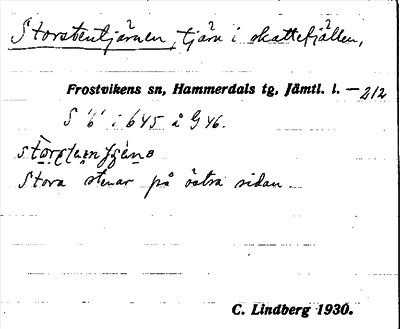 Storstentjärnen, tjärn i skattefjällen,
Frostvikens sn, Hammerdals tg, Jämtl. l. — 212
S 'b' i 645 å G 46.
Stora stenar på östra sidan
C. Lindberg 1930.